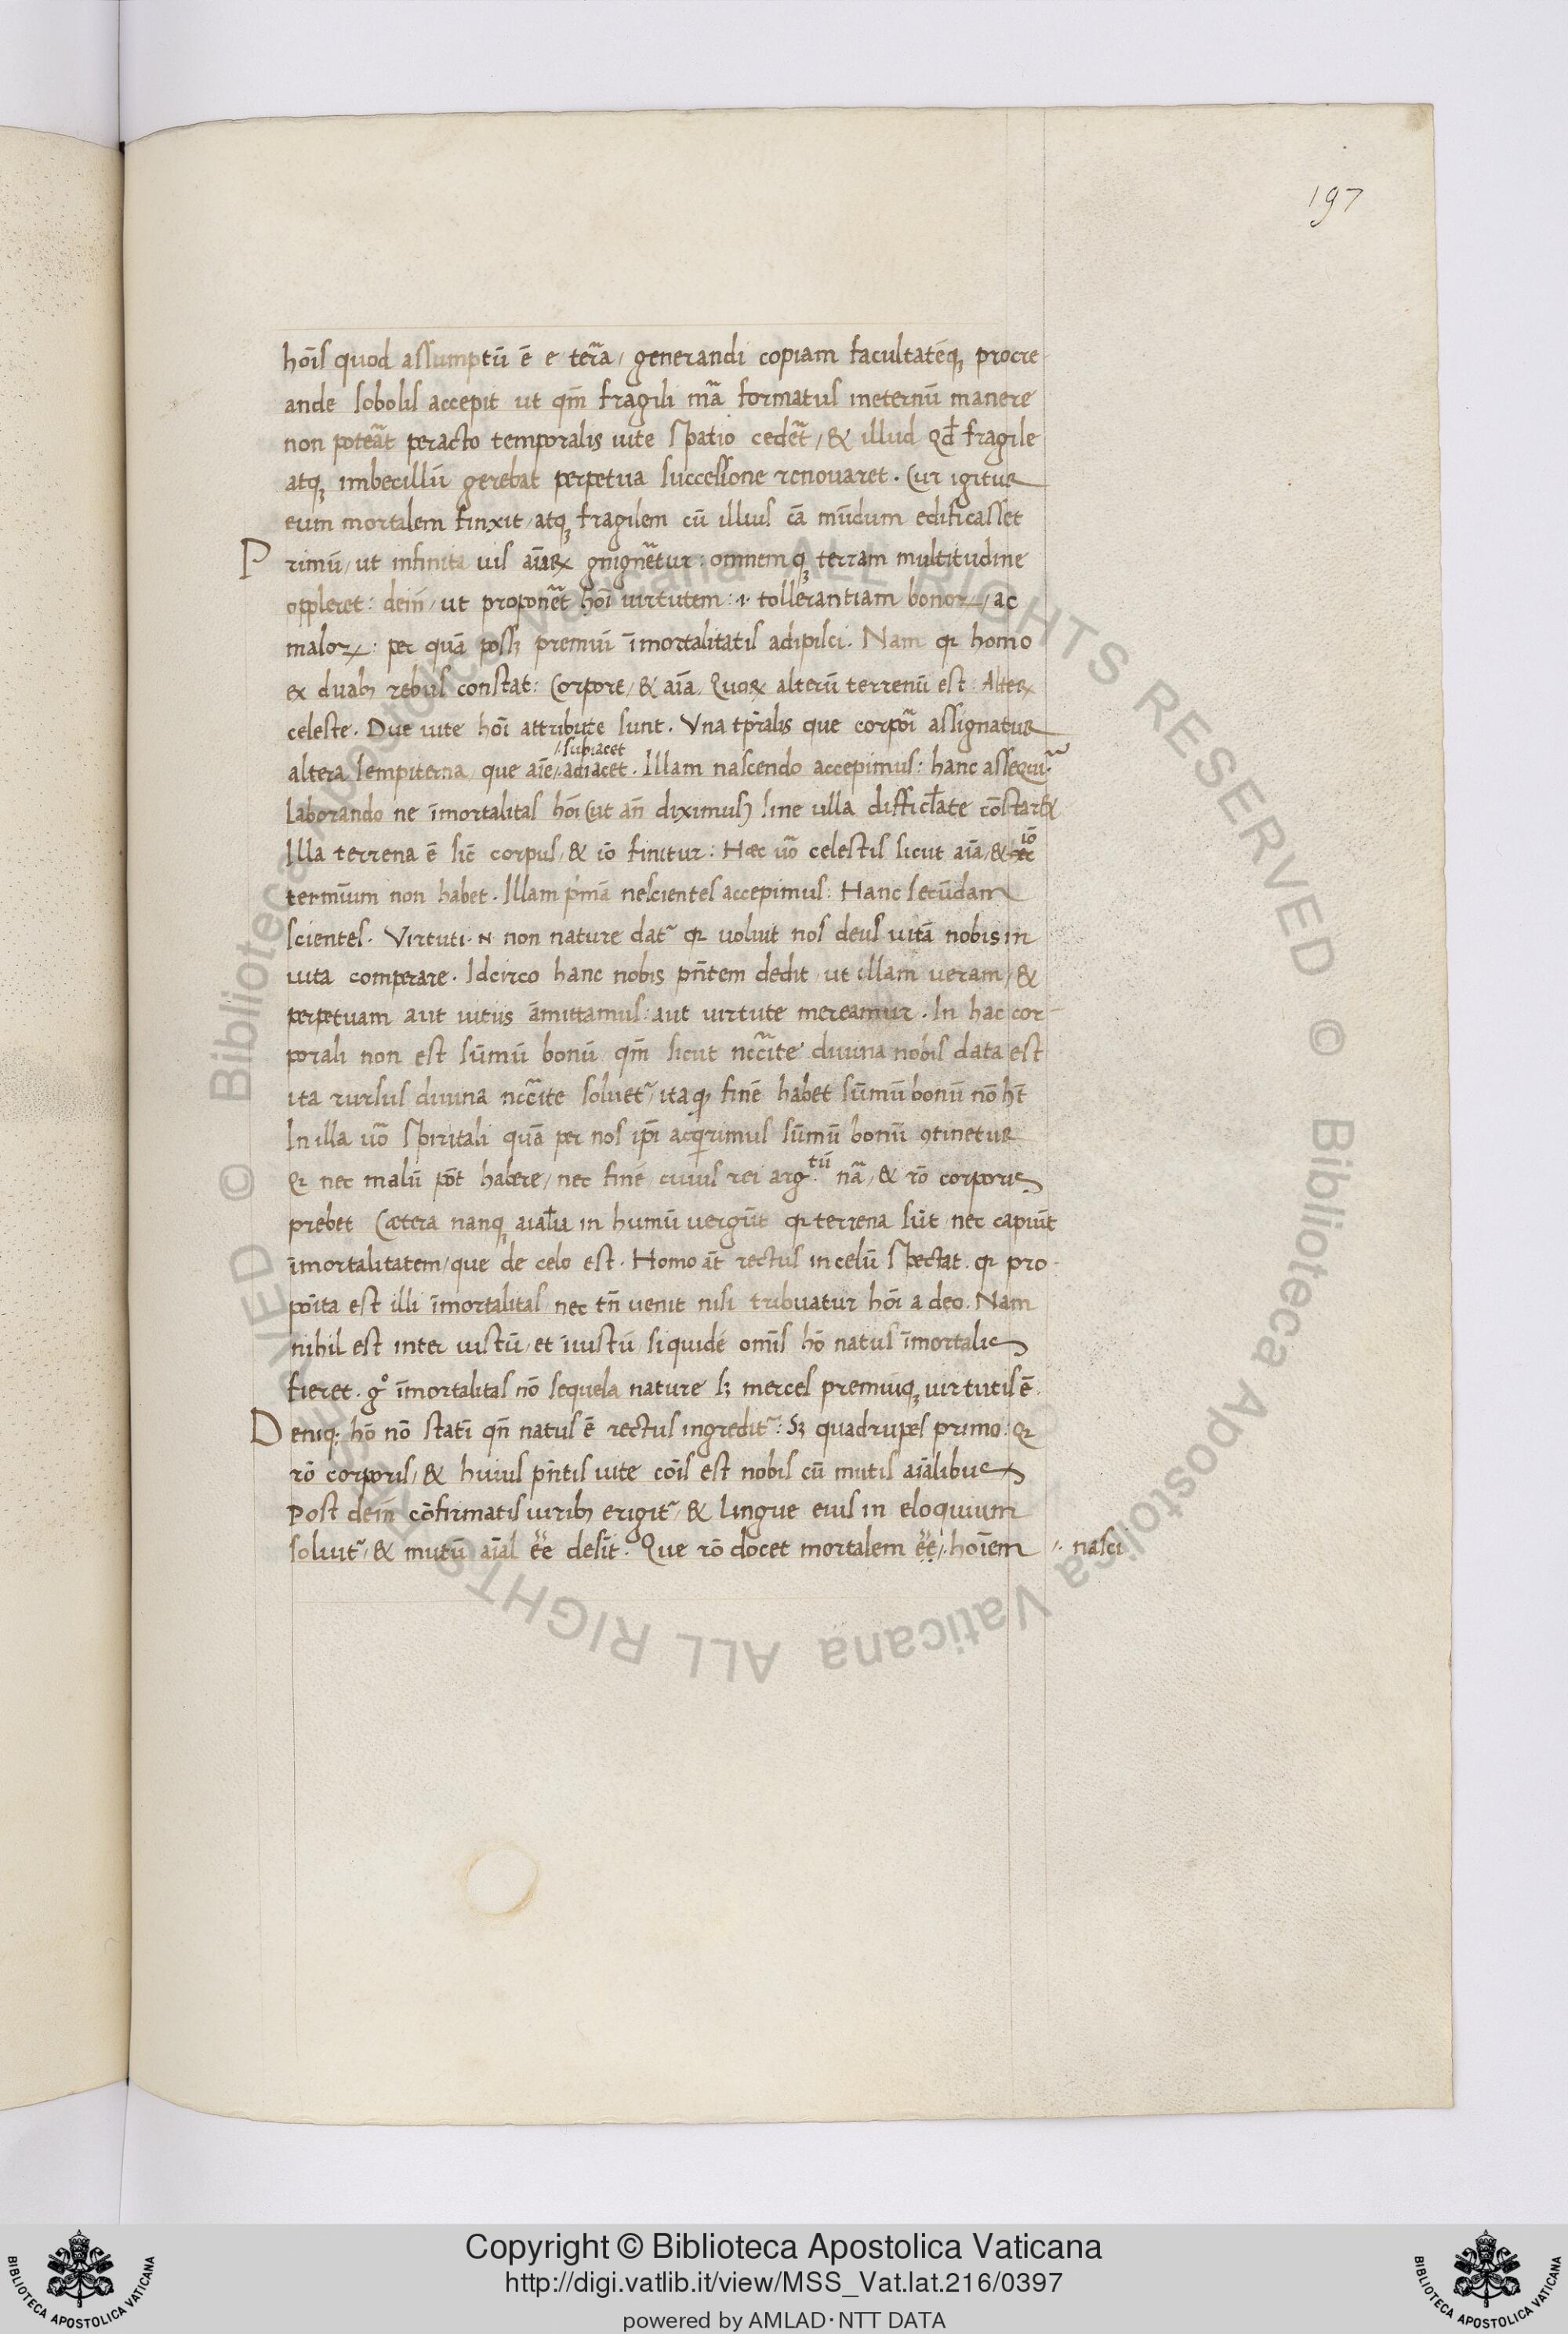 197
hōīs quod assumptū ē e ter̄a / generandi copiam facultatēqꝫ procre-
ande sobolis accepit ut qm̄ fragili mā formatus ineternū manere
non poteāt peracto temporalis uite spatio cedēt / & illud qd̄ fragile
atqꝫ imbecillū gerebat perpetua successione renouaret . Cur igitur
eum mortalem finxit / atqꝫ fragilem cū illius cā mūdum edificasset
Primū / ut infinita uis aīaꝝ gnignētur : omnemqꝫ terram multitudine
oppleret : dein̄ / ut proponēt hoī uirtutem : .i. tollerantiam bonoꝝ / ac
maloꝝ : per quā possꝫ premiū īmortalitatis adipisci . Nam qꝛ homo
ex duabꝫ rebus constat : Corpore / & aīa . Quoꝝ alterū terrenū est : Alteꝝ
celeste . Due uite hoī attribute sunt . Vna tp̄ralis que corpōi assignatur
/. subiacet
altera sempiterna / que aīe /. adiacet . Illam nascendo accepimus : hanc assequi.̄
laborando ne īmortalitas hōi (ut an̄ diximus) sine ulla difficl̄ate cōstaret
Illa terrena ē sic̄ corpus / & iō finitur : Hæc uō celestis sicut aīa / & ec iō
termīum non habet . Illam pˈmā nescientes accepimus : Hanc secūdam
scientes . Virtuti .N. non nature dat᷑ qꝛ uoluit nos deus uitā nobis in
uita comperare . Idcirco hanc nobis pn̄tem dedit ut illam ueram / &
perpetuam aut uitiis āmittamus : aut uirtute mereamur . In hac cor-
porali non est sūmū bonū qm̄ sicut nccāite diuina nobis data est
ita rursus diuina nccāite soluet᷑ / itaqꝫ finē habet sūmū bonū nō hꝫt
In illa uō spiritali quā per nos ip̄i acqrimus sūmū bonū ꝯtinetur
Qꝛ nec malū pōt habere / nec finē / cuius rei arg.tū nā / & rō corporis
prebet Cætera nanqꝫ aial̄ia in humū uergūt qꝛ terrena sūt / nec capiūt
īmortalitatem / que de celo est . Homo at̄ rectus in celū spectat . qꝛ pro-
pōita est illi īmortalitas / nec tn̄ uenit nisi tribuatur hōi a deo . Nam
nihil est inter iustū / et iīustū / siquidē omīs hō natus īmortalis
fieret . gͦ īmortalitas nō sequela nature sꝫ merces premiūqꝫ uirtutis ē.
Deniqꝫ hō nō statī qn̄ natus ē rectus ingredit᷑ : Sꝫ quadrupes primo : Qꝛ
rō corporis / & huius pn̄tis uite cōis est nobis cū mutis aīalibus
Post dein̄ cōfirmatis uiribꝫ erigit᷑ / & lingue eius in eloquium
soluit᷑ / & mutū aīal ēe desīt . Que rō docet mortalem ēe /. hoīem /. nasci
Copyright © Biblioteca Apostolica Vaticana
http://digi.vatlib.it/view/MSS_Vat.lat.216/0397
powered by AMLAD·NTT DATA